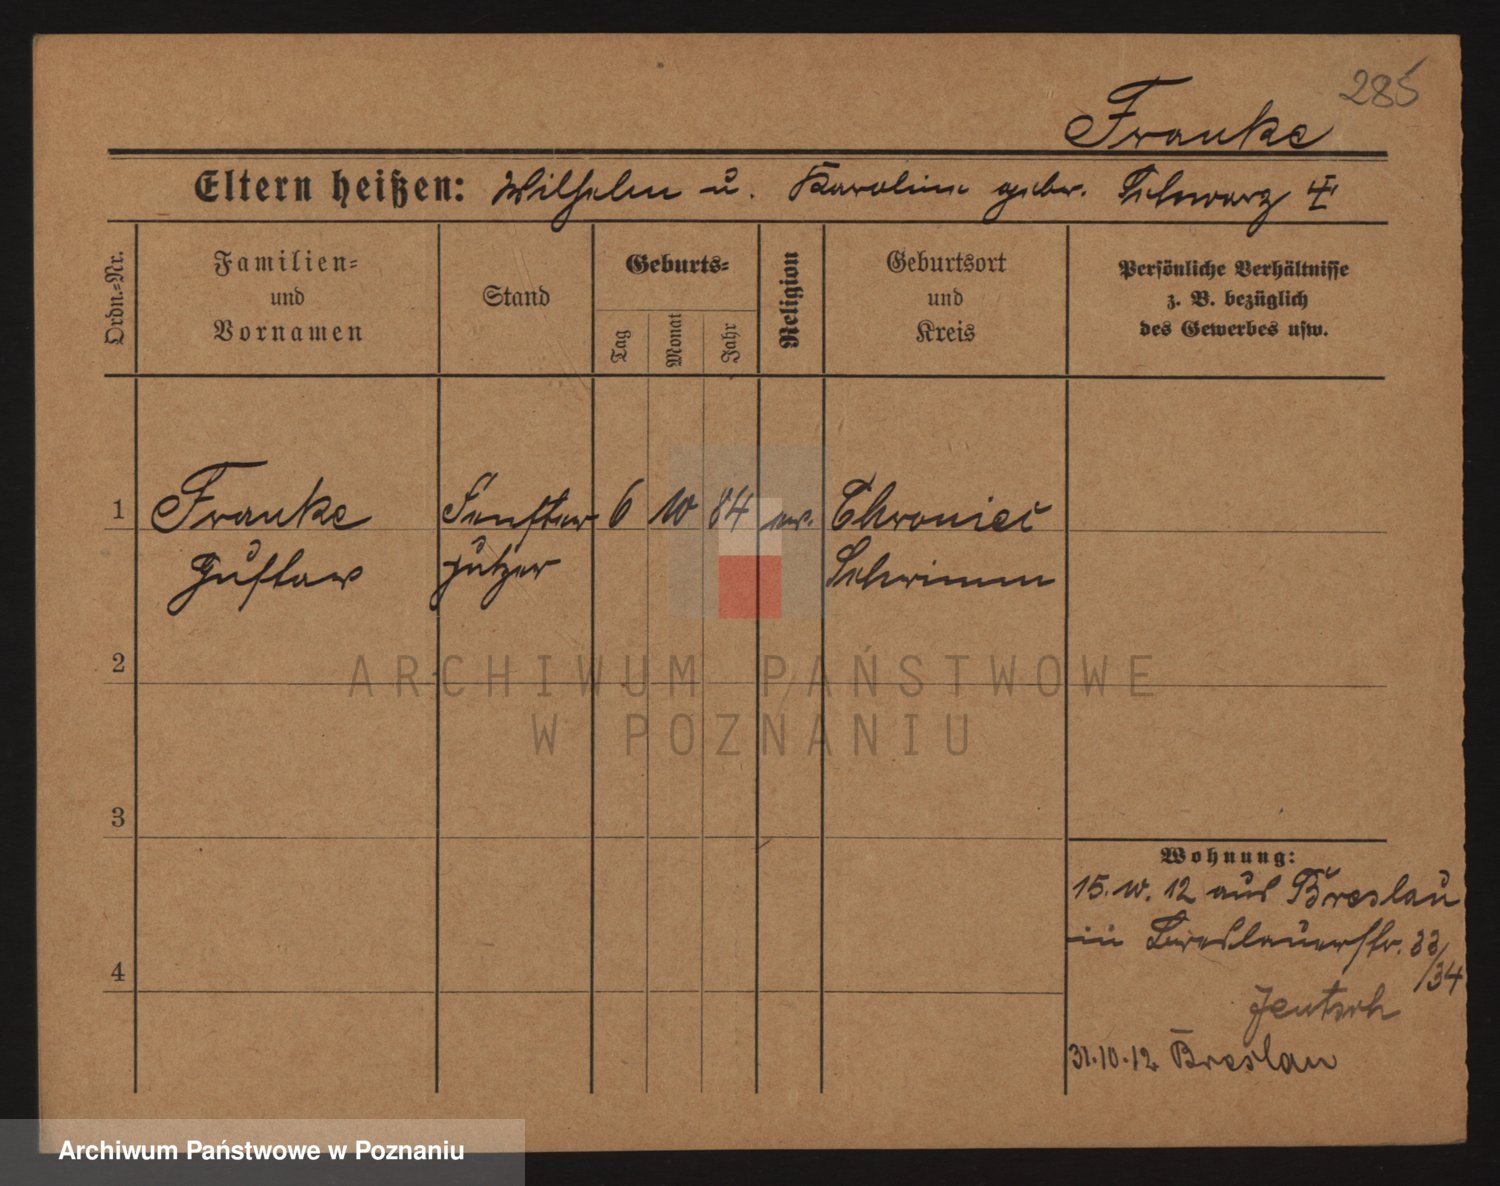 285
Franke
Eltern heißen: Wilhelm u. Karoline gebr. Schwarz
Ordn.-Nr.
Familien-
und
Vornamen
Stand
Geburts-
Tag
Monat
Jahr
Religion
Geburtsort
und
Kreis
Persönliche Verhältnisse
z. B. bezüglich
des Gewerbes usw.
1 Franke Fenster 6 10 84 ev.
Gustav putzer Schrimm
2
3
4
Wohnung:
15. 10. 12 aus Breslau
in Breslauerstr. 33
/34
Jentsch
31.10.12 Breslau
ARCHIWUM PAŃSTWOWE
W POZNANIU
Archiwum Państwowe w Poznaniu